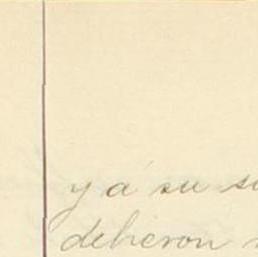 y á su
debieron